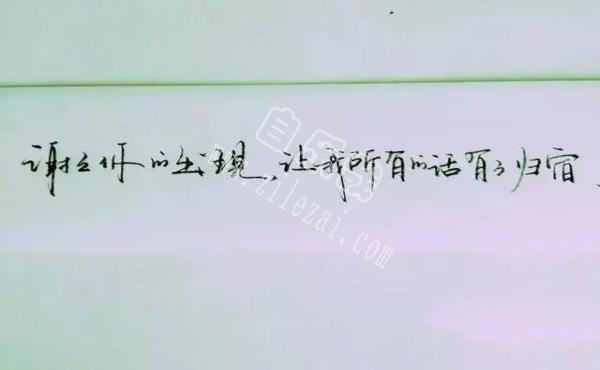 谢谢你的出现,让我所有的话有了归宿
自乐哉
www.zilezai.com